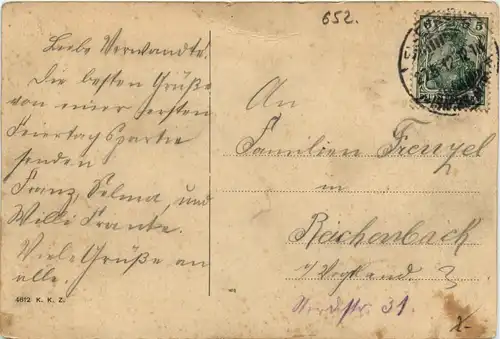 652.
Liebe Verwandte!
Die besten Grüße
von einer ersten
Feiertagspartie
senden
Franz, Selma, und
Willi Franke.
Viele Grüße an
alle.
4612 K. K. Z.
An
Familien Frenzel
in
Reichenbach
i/Vogtland
Nordstr. 31.